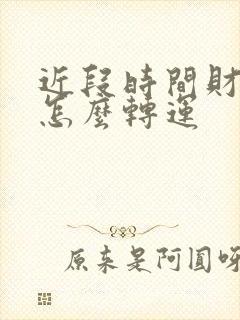 近段時間財
怎麼轉運
原來是阿圓呀